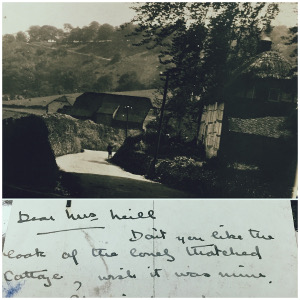 Dear Mrs Neill
Don't you like the
look of the lonely thatched
Cottage, wish it was mine.